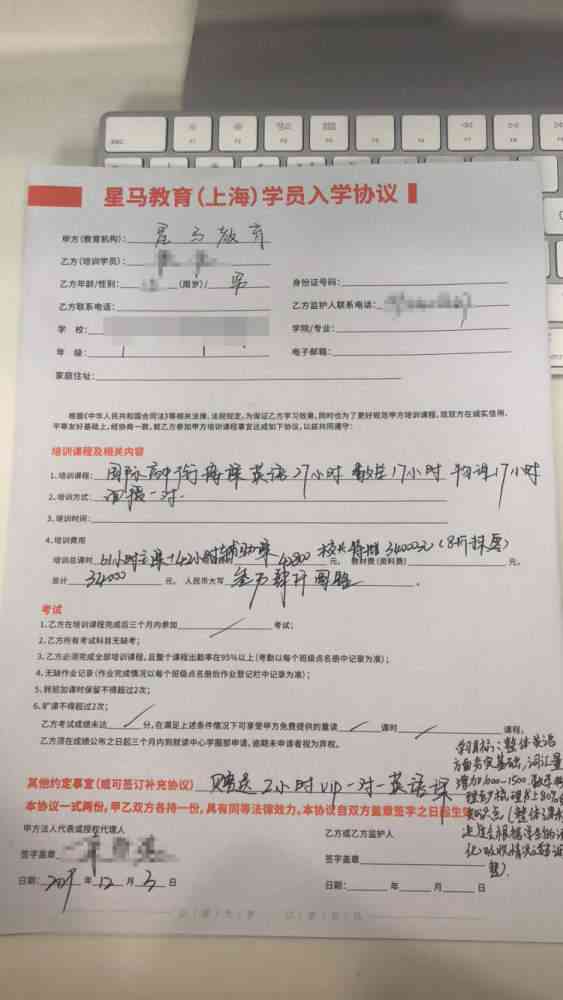 星马教育(上海)学员入学协议
甲方(教育机构): 星马教育
乙方(培训学员):
乙方年龄/性别: (周岁)/ 男 身份证号码:
乙方联系电话: 乙方监护人联系电话:
学 校: 学院/专业:
年 级: 电子邮箱:
家庭住址:
根据《中华人民共和国合同法》等相关法律、法规规定,为保证乙方学习效果,同时也为了更好规范甲方培训课程,故双方在诚实信用、
平等友好基础上,经协商一致,就乙方参加甲方培训课程事宜达成如下协议,以兹共同遵守:
培训课程及相关内容
1.培训课程: 国际高中衔接课 英语27小时 数学17小时 物理17小时
2.培训方式: 一对一
3.培训时间:
4.培训费用
培训总课时 61小时主课+42小时辅助课 42800 元, 教材费(资料费) 校长特批34000元(8折抹零) 元,
总计 34000 元。 人民币大写 叁万肆仟圆整 .
考试
1.乙方在培训课程完成后三个月内参加 考试;
2.乙方所有考试科目无缺考;
3.乙方必须完成全部培训课程,且整个课程出勤率在95%以上(考勤以每个班级点名册中记录为准);
4.无缺作业记录(作业完成情况以每个班级点名册后作业登记栏中记录为准);
5.转班加课时保留不得超过2次;
6.旷课不得超过2次;
乙方考试成绩未达 分,在满足上述条件情况下可享受甲方免费提供的重读 课时 课程,
乙方须在成绩公布之日起三个月内到就读中心学服部申请,逾期未申请者视为弃权。
其他约定事宜(或可签订补充协议) 赠送2小时vip一对一英语课
本协议一式两份,甲乙双方各持一份,具有同等法律效力。本协议自双方盖章签字之日起生
学习目标:整体英语
方面夯实基础,词汇量
增加1000-1500,数学
物理 80%
知识点(整体课
根据学生的
化吸收情况
整)
甲方法人代表或授权代理人 乙方或乙方监护人
签字盖章 签字盖章
日期: 年 12 月 3 日 日期: 年 月 日